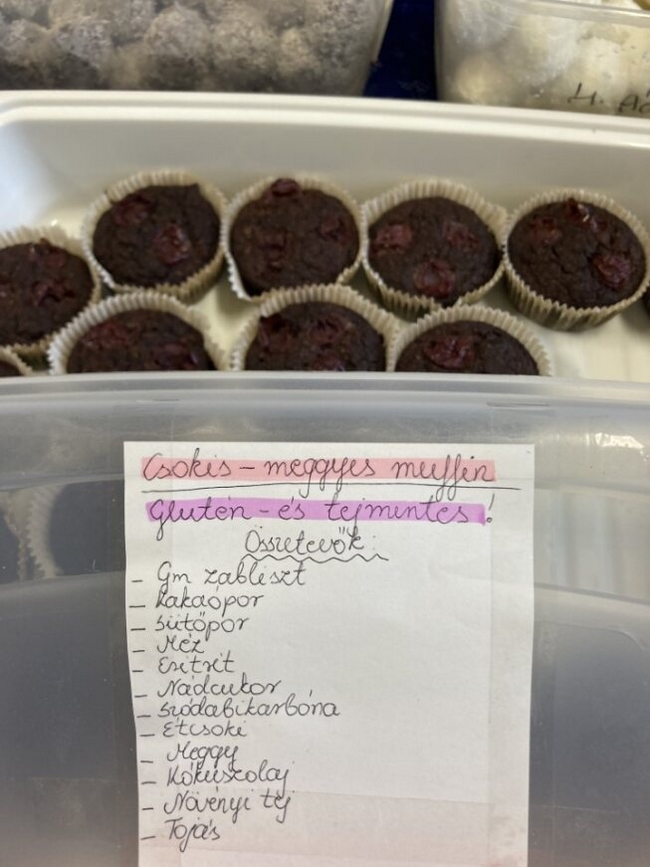 Csokis - meggyes muffin
Glutén - és tejmentes!
Összetevők:
- Gm zabliszt
- Kakaópor
- sütőpor
- Méz
- Eritrit
- Nádcukor
- szódabikarbóna
- Étcsoki
- Meggy
- Kókuszolaj
- Növényi tej
- Tojás